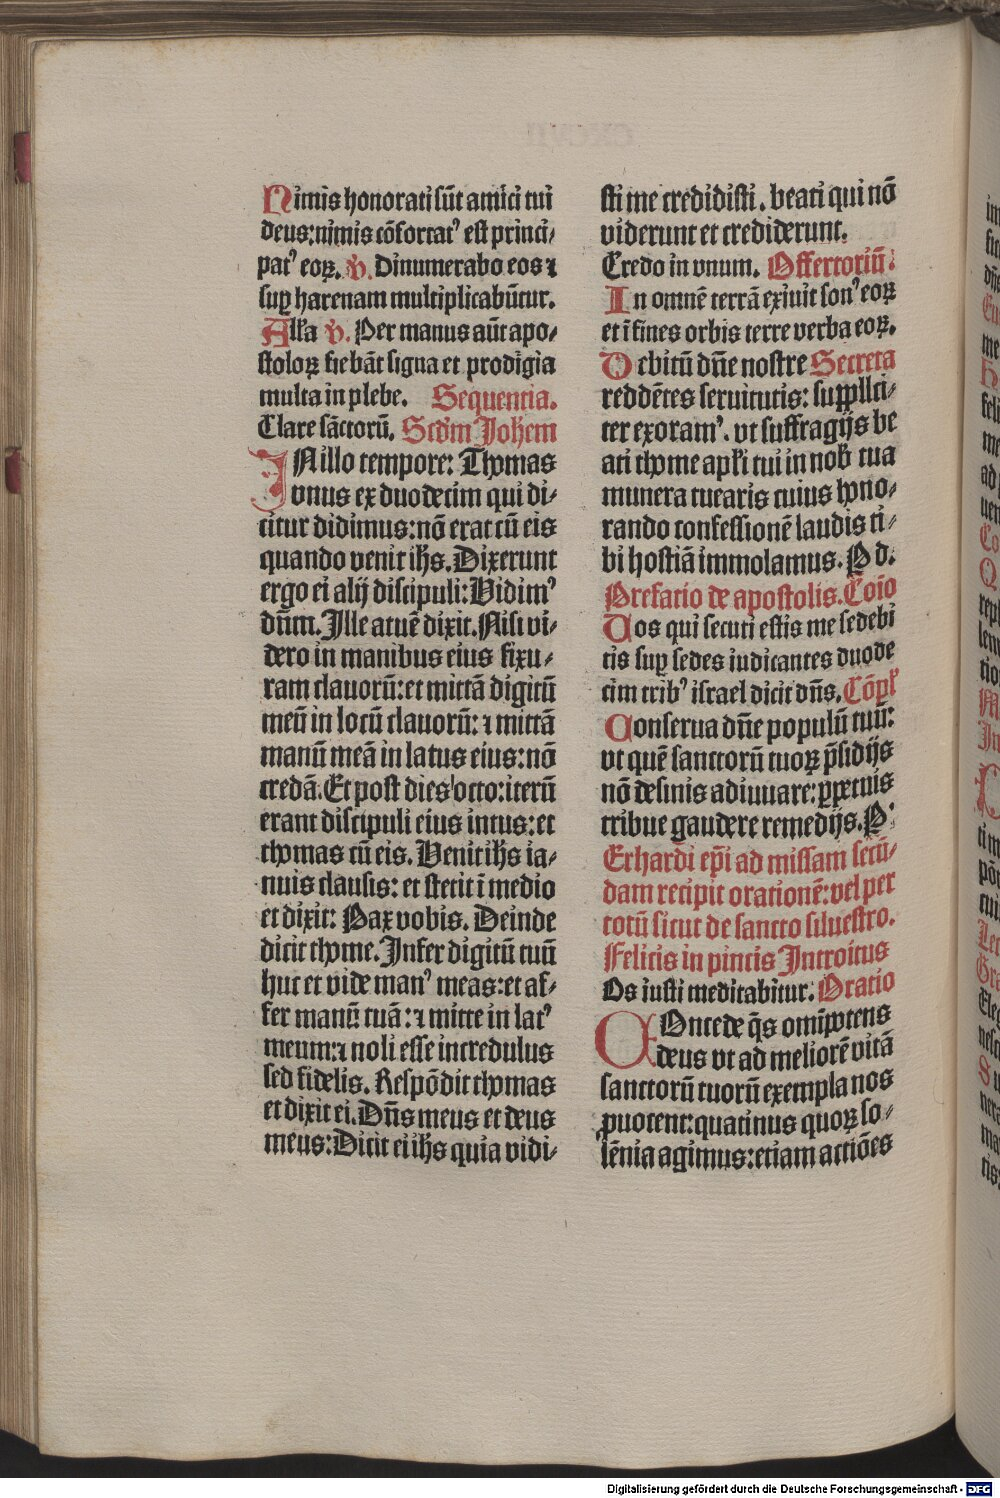 Nimis honorati sūt amici tui
deus: nimis cōfortatꝰ est princi⸗
patꝰ eoꝝ. ꝟ. Dinumerabo eos ⁊
suꝑ harenam multiplicabūtur.
Alľa ꝟ. Per manus aūt apo⸗
stoloꝝ fiebāt signa et prodigia
multa in plebe. Sequentia.
Clare sāctorū. Scd̄m Johem
IN illo tempore: Thomas
vnus ex duodecim qui di⸗
citur didimus: nō erat cū eis
quando venit ih̄s. Dixerunt
ergo ei alij discipuli: Vidimꝰ
dn̄m. Ille atuē dixit. Nisi vi⸗
dero in manibus eius fixu⸗
ram clauorū: et mittā digitū
meū in locū clauorū: ⁊ mittā
manū meā in latus eius: nō
credā. Et post dies octo: iterū
erant discipuli eius intus: et
thomas cū eis. Venit ih̄s ia⸗
nuis clausis: et stetit ī medio
et dixit: Pax vobis. Deinde
dicit thome. Infer digitū tuū
huc et vide manꝰ meas: et af⸗
fer manū tuā: ⁊ mitte in latꝰ
meum: ⁊ noli esse incredulus
sed fidelis. Respōdit thomas
et dixit ei. Dn̄s meus et deus
meus: Dicit ei ih̄s quia vidi⸗
sti me credidisti. beati qui nō
viderunt et crediderunt.
Credo in vnum. Offertoriū.
In omnē terrā exiuit sonꝰ eoꝝ
et ī fines orbis terre verba eoꝝ.
Debitū dn̄e nostre Secreta
reddētes seruitutis: supplici⸗
ter exoramꝰ. vt suffragijs be
ati thome apľi tui in nob̄ tua
munera tuearis cuius hono⸗
rando confessionē laudis ti⸗
bi hostiā immolamus. P d.
Prefatio de apostolis. Coīo
Vos qui secuti estis me sedebi
tis suꝑ sedes iudicantes duode
cim tribꝰ israel dicit dn̄s. Cōpľ
Conserua dn̄e populū tuū:
vt quē sanctorū tuoꝝ p̄sidijs
nō desinis adiuuare: ꝑpetuis
tribue gaudere remedijs. P.
Erhardi ep̄i ad missam secū⸗
dam recipit orationē: vel per
totū sicut de sancto siluestro.
Felicis in pincis Introitus
Os iusti meditabitur. Oratio
COncede q̄s omīpotens
deus vt ad meliorē vitā
sanctorū tuorū exempla nos
ꝓuocent: quatinus quoꝝ so⸗
lēnia agimus: etiam actiōes